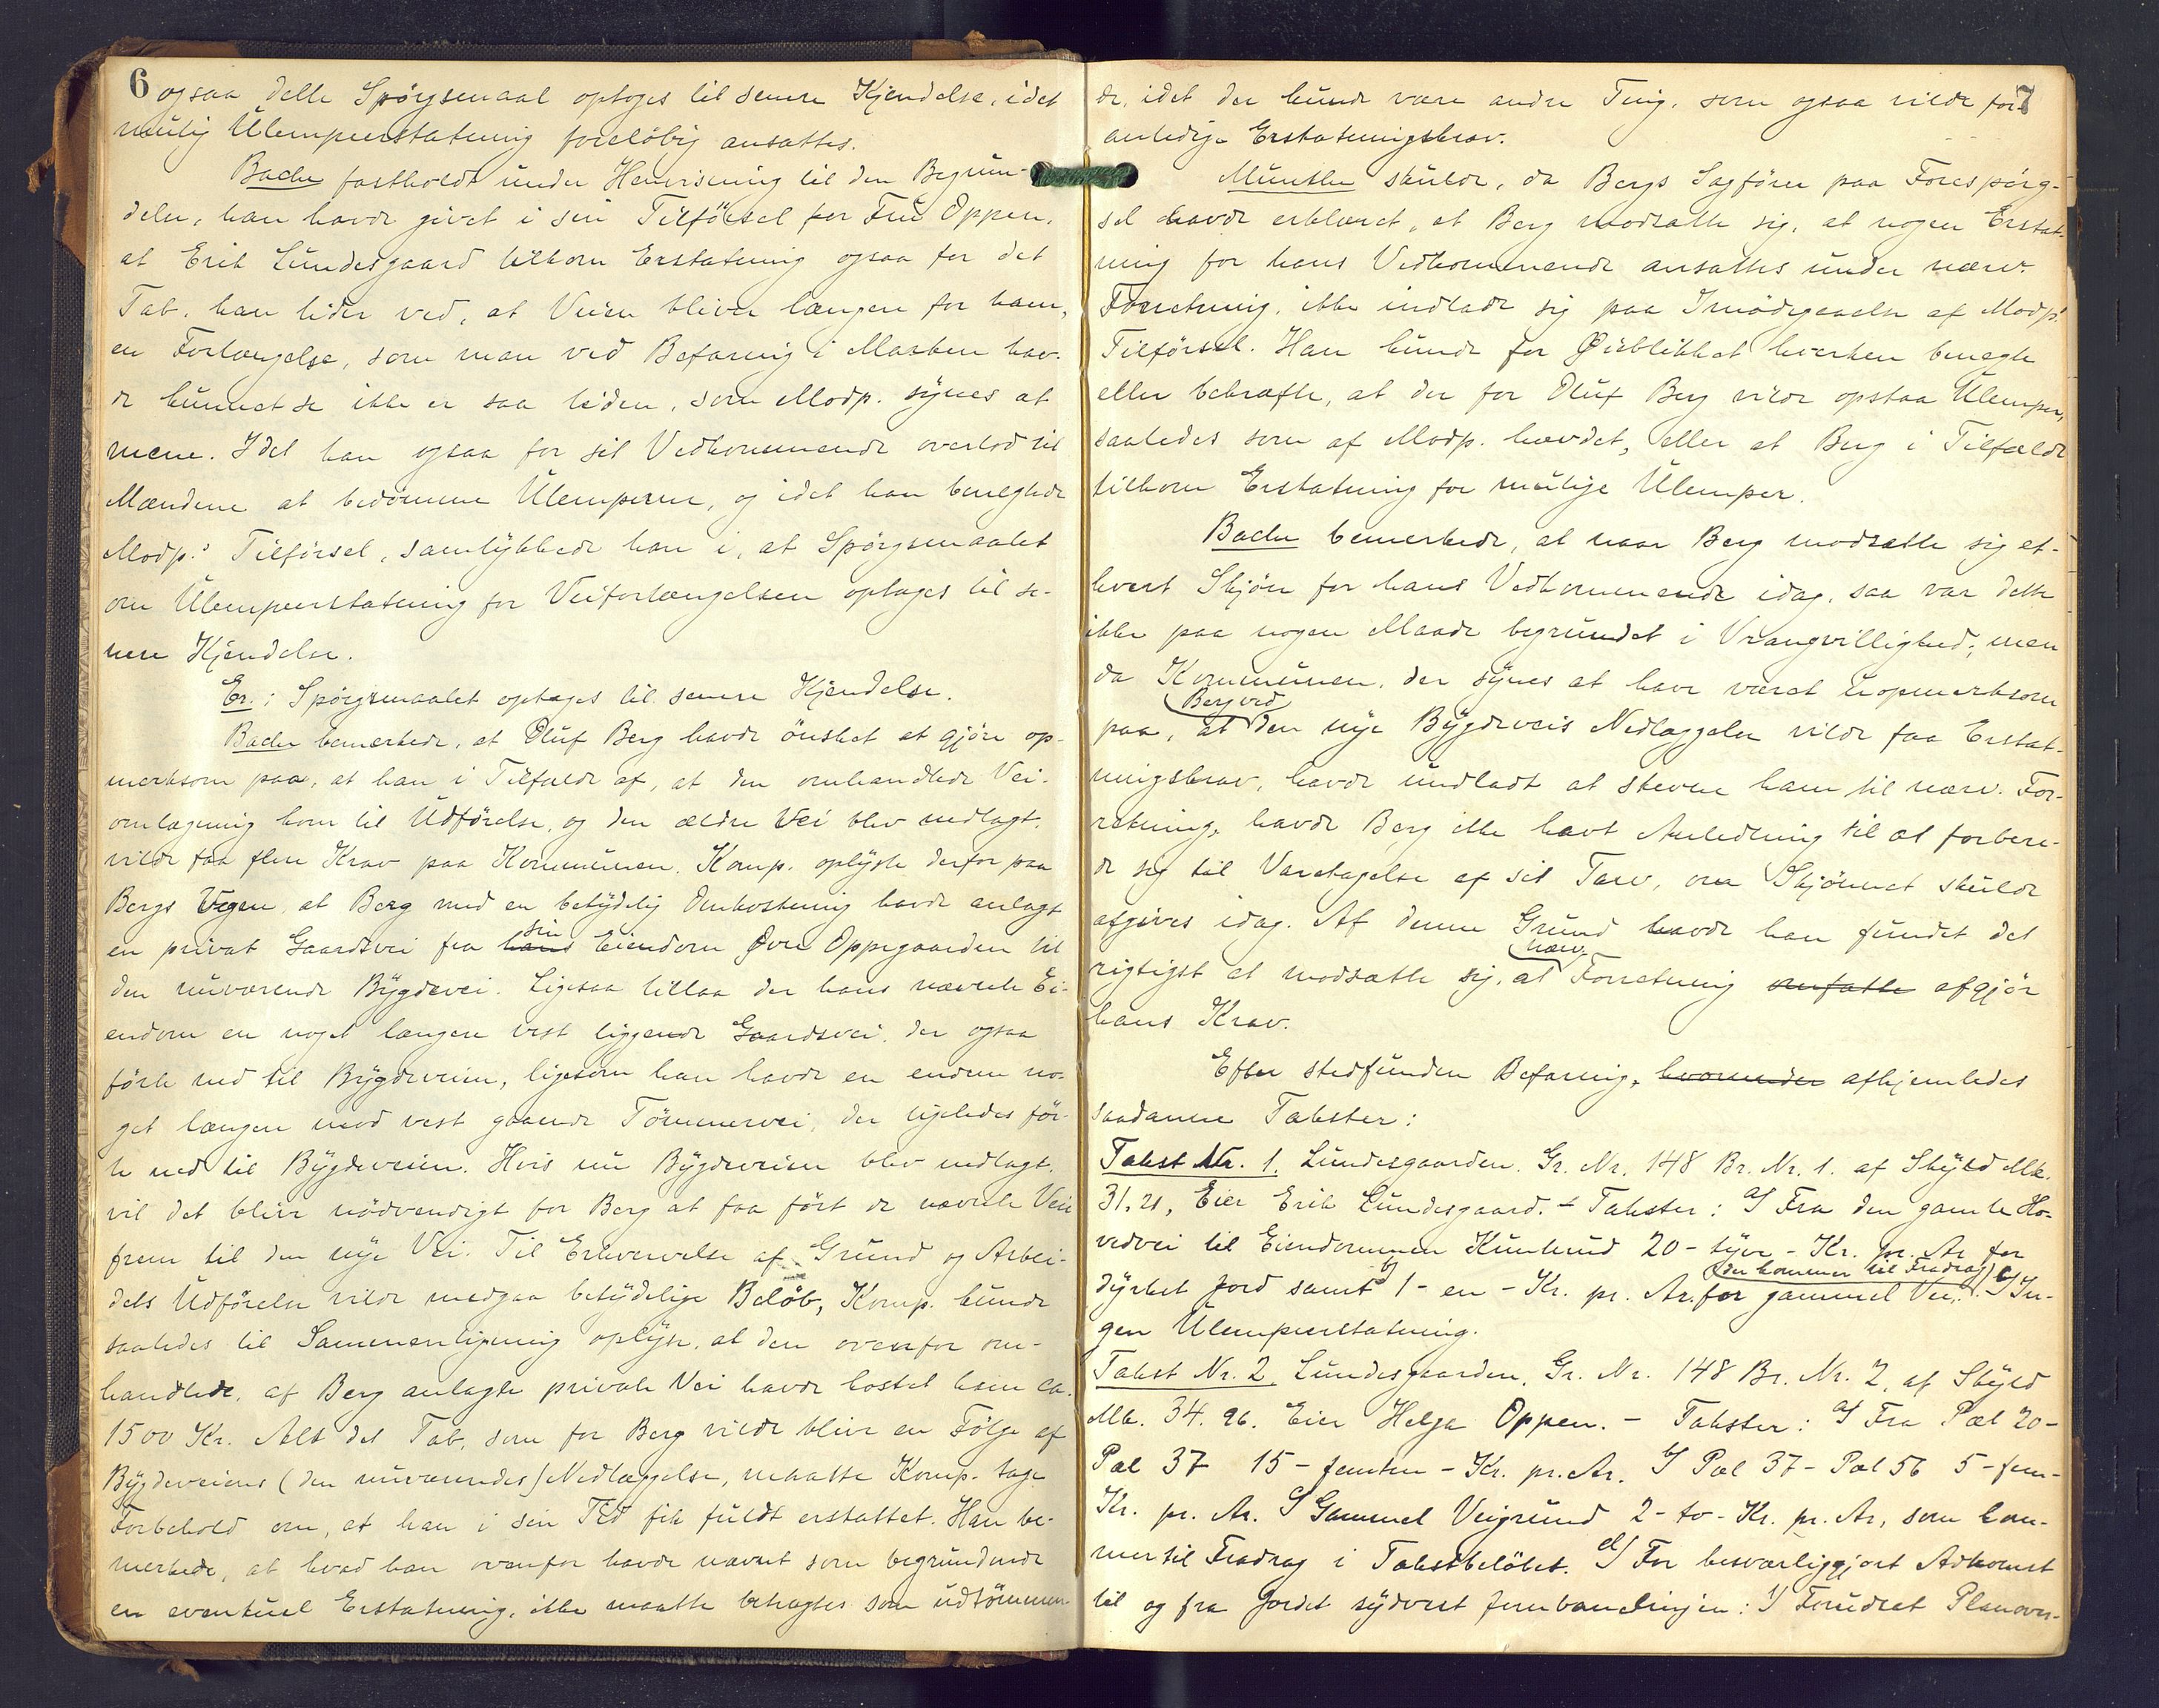 6
ogsaa dette Spörgsmaal optages til senere Kjendelse, idet
mulig Ulempeerstatning foreløbig ansattes.
Bache fastholdt under Henvisning til den Begrun-
delse, han havde givet i sin Tilförsel for Fru Oppen,
at Erik Lundesgaard tilkom Erstatning ogsaa for det
Tab, han lider ved, at Veien bliver længere for ham,
en Forlængelse, som man ved Befaring i Marken hav-
de kunnet se ikke er saa liden, som Modp. synes at
mene. Idet han ogsaa for sit Vedkommende overlod til
Mændene at bedömme Ulemperne, og idet han benegtede
Modp.s Tilförsel, samtykkede han i, at Spörgsmaalet
om Ulempeerstatning for Veiforlængelsen optages til se-
nere Kjendelse.
Er.: Spörgsmaalet optages til senere Kjendelse.
Bache bemerkede, at Oluf Berg havde önsket at gjöre op-
merksom paa, at han i Tilfælde af, at den omhandlede Vei-
omlægning kom til Udförelse, og den ældre Vei blev nedlagt,
vilde faa flere Krav paa Kommunen. Komp. oplyste derfor paa
Bergs Vegne, at Berg med en betydelig Omkostning havde anlagt
en privat Gaardsvei fra hans sin Eiendom Øvre Oppegaarden til
den nuværende Bygdevei. Ligesaa tillaa der hans nævnte Ei-
endom en noget længere vest liggende Gaardsvei, der ogsaa
förte ned til Bygdeveien, ligesom han havde en endnu no-
get længere mod vest gaaende Tömmervei, der ligeledes för-
te ned til Bygdeveien. Hvis nu Bygdeveien blev nedlagt,
vil det blive nödvendigt for Berg at faa fört de nævnte Veie
frem til den nye Vei. Til Erhvervelse af Grund og Arbei-
dets Udförelse vilde medgaa betydelige Belöb, Komp. kunde
saaledes til Sammenligning oplyse, at den ovenfor om-
handlede, af Berg anlagte private Vei havde kostet ham ca.
1500 Kr. Alt det Tab, som for Berg vilde blive en Fölge af
Bygdeveiens (den nuværendes) Nedlæggelse, maatte Komp. tage
Forbehold om, at han i sin Tid fik fuldt erstattet. Han be-
merkede, at hvad han ovenfor havde nævnt som begrundende
en eventuel Erstatning, ikke maatte betragtes som udtömmen
7
de, idet der kunde være andre Ting, som ogsaa vilde for-
anledige Erstatningskrav.
Munthe skulde, da Bergs Sagförer paa Forespörg-
sel havde erklæret, at Berg modsatte sig, at nogen Erstat-
ning for hans Vedkommende ansattes under nærv.
Forretning, ikke indlade sig paa Imödegaaelse af Modp.s
Tilförsel. Han kunde for Øieblikket hverken benegte
eller bekræfte, at der for Oluf Berg vilde opstaa Ulemper,
saaledes som af Modp. hævdet, eller at Berg i Tilfælde
tilkom Erstatning for mulige Ulemper.
Bache bemerkede, at naar Berg modsatte sig et-
hvert Skjön for hans Vedkommende idag, saa var dette
ikke paa nogen Maade begrundet i Vrangvillighed; men
da Kommunen, der synes at have været uopmerksom
paa, at Berg ved den nye Bygdeveis Nedlæggelse vilde faa Erstat-
ningskrav, havde undladt at stevne ham til nærv. For-
retning, havde Berg ikke havt Anledning til at forbere-
de sig til Varetagelse af sit Tarv, om Skjönnet skulde
afgives idag. Af denne Grund havde han fundet det
rigtigst at modsætte sig, at nærv. Forretning omfatte afgjör
hans Krav.
Efter stedfunden Befaring, hvorunder afhjemledes
saadanne Takster:
Takst Nr. 1. Lundesgaarden. Gr. Nr. 148 Br. Nr. 1. af Skyld Mk.
31.21, Eier Erik Lundesgaard. – Takster: a/ Fra den gamle Ho-
vedvei til Eiendommen Kunkrud 20 – tyve – Kr. pr. Ar for
dyrket Jord samt b/ 1 – en – Kr. pr. Ar. for gammel Vei, (der kommer til Fradrag) c/ In-
gen Ulempeerstatning.
Takst Nr. 2. Lundesgaarden. Gr. Nr. 148 Br. Nr. 2. af Skyld
Mk. 34.96. Eier Helga Oppen. – Takster: a/ Fra Pæl 20 –
Pæl 37 15 – femten – Kr. pr. Ar. b/ Pæl 37 – Pæl 56 5 – fem –
Kr. pr. Ar. c/ Gammel Veigrund 2 – to – Kr. pr. Ar, som kom-
mer til Fradrag i Takstbelöbet. d/ For besværliggjort Adkomst
til og fra Jordet sydvest jernbanelinjen: 1/ Forudsat Planover-